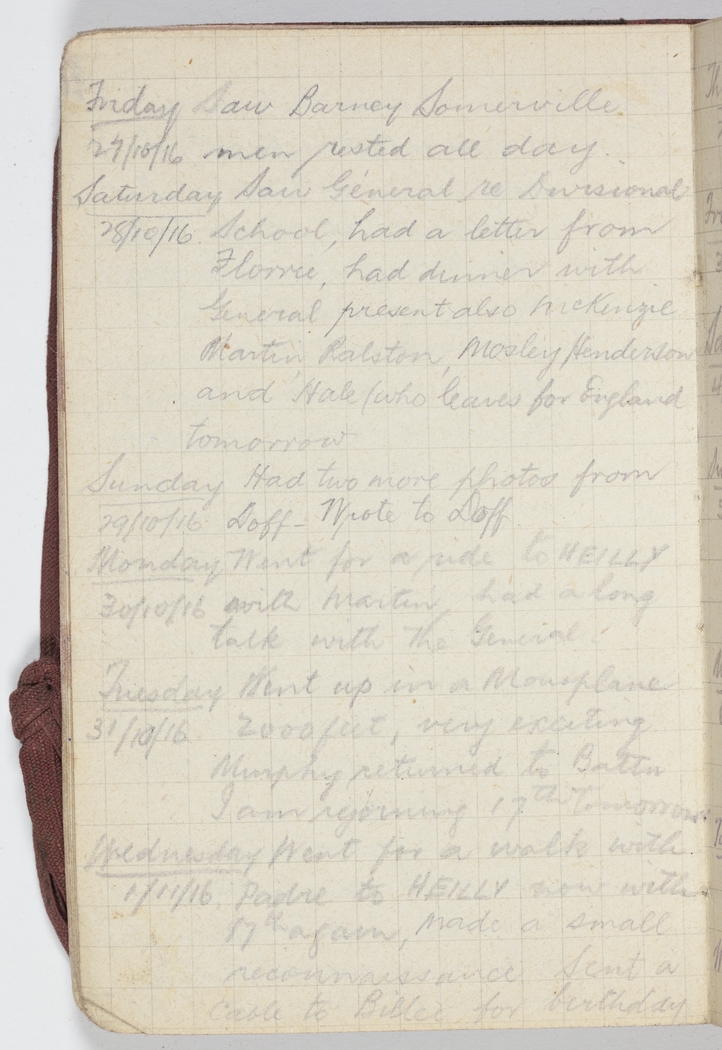 Friday Saw Barney Somerville
27/10/16 men rested all day.
Saturday Saw General re Divisional
28/10/16. School, had a letter from
Florrie, had dinner with
General present also McKenzie
Martin, Ralston, Mosley, Henderson
and Hale (who leaves for England
tomorrow
Sunday Had two more photos from
29/10/16 Doff - Wrote to Doff
Monday Went for a ride to HEILLY
30/10/16 with Martin, had a long
talk with the General.
Tuesday Went up in a
31/10/16 2000 feet, very exciting
Murphy returned to Battn
I am rejoining 17th tomorrow.
Wednesday Went for a walk with
1/11/16. Padre to HEILLY now with
17th again, made a small
reconnaissance Sent a
cable to Billee for birthday